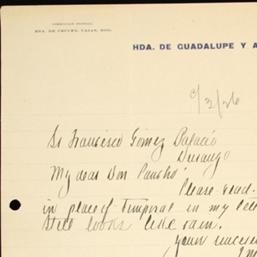 DIRECCION POSTAL
HDA. DE HDA. DE GUADALUPE Y A
6/3/26
Sr Francisco Gómez Palacio
Durango
My dear Don Pancho:
Please read
in place of temporal in my
still looks like rain.
Your